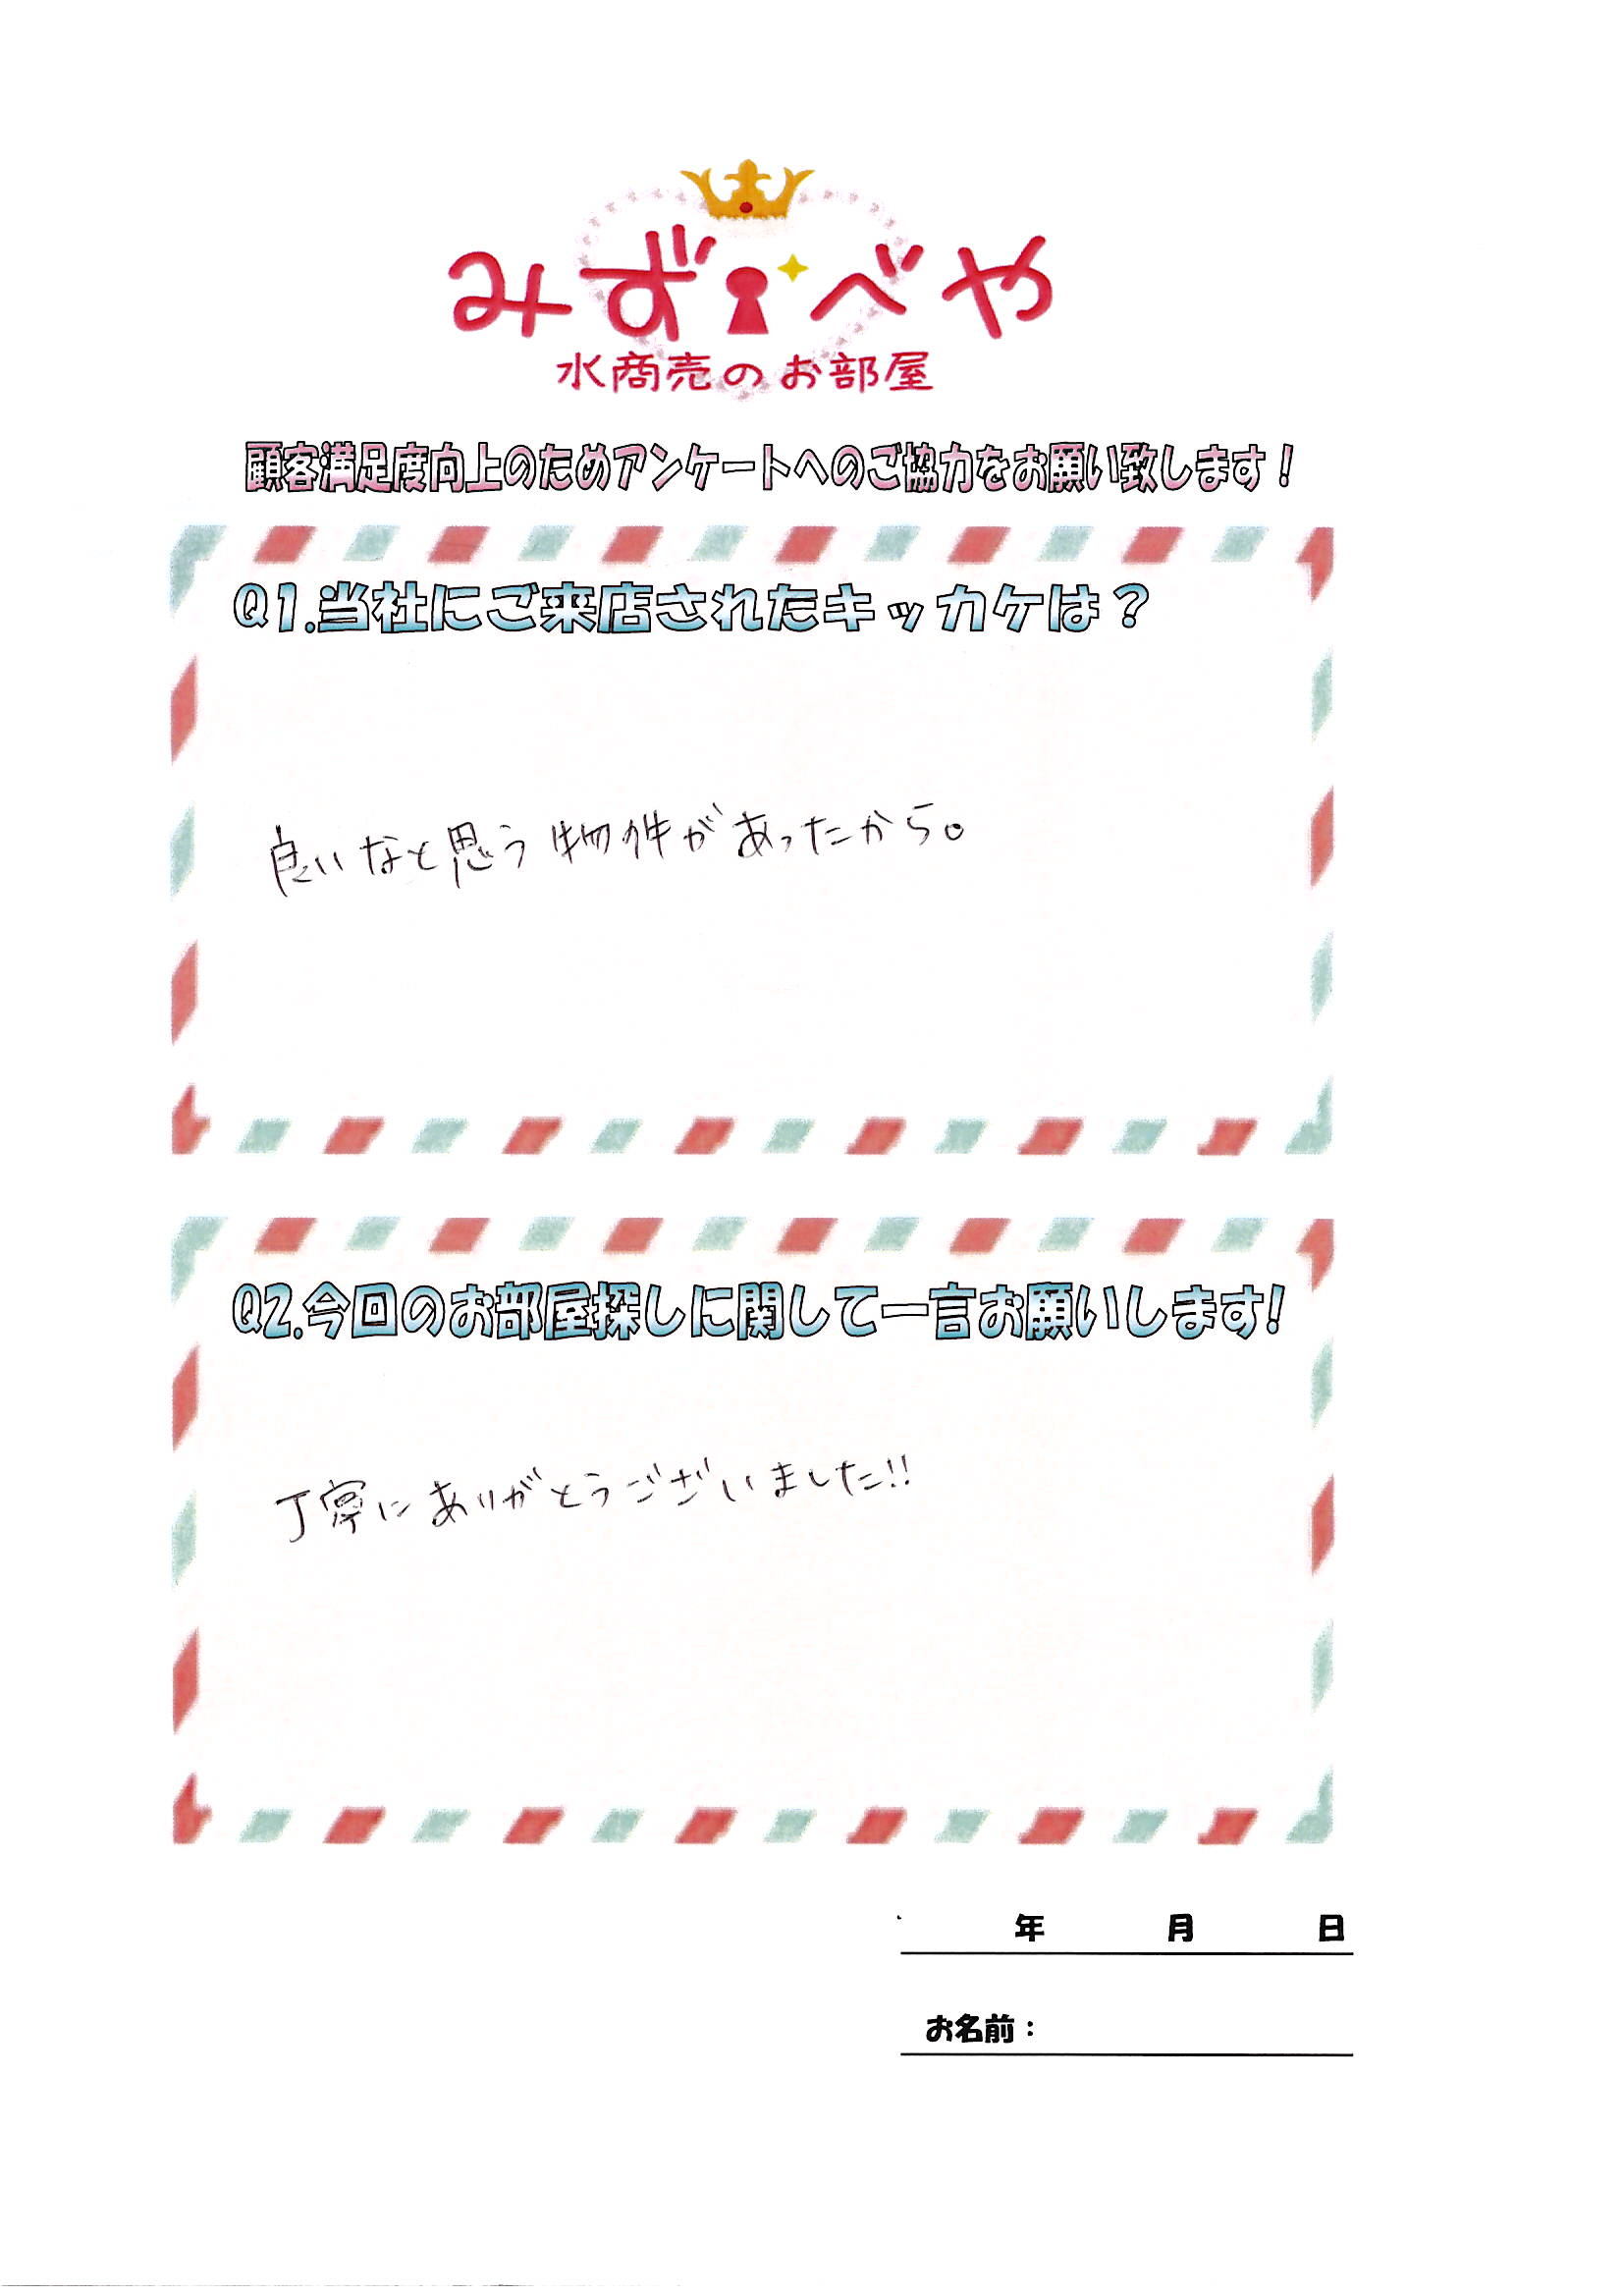 みずべや
水商売のお部屋
顧客満足度向上のためアンケートへのご協力をお願い致します！
Q1.当社にご来店されたキッカケは？
良いなと思う物件があったから。
Q2.今回のお部屋探しに関して一言お願いします!
丁寧にありがとうございました!!
年 月 日
お名前：